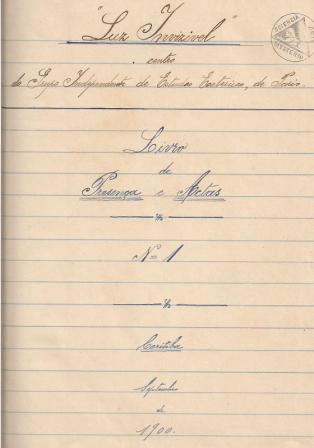 "Luz Invizivel"
centro
do Grupo Independente de Estudos Esotericos, de Pariz.
Livro
de
Presença e Actas
Nº 1
Corityba
Septembro
de
1900.